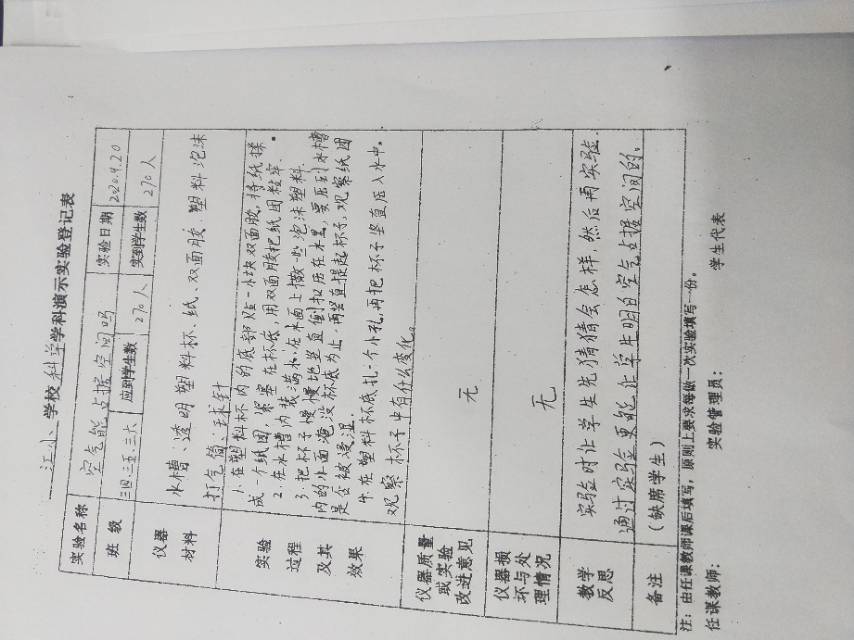 江小 学校 科学 学科演示实验登记表
实验名称 空气能占据空间吗 实验日期 2020.9.20
班 级 应到学生数 270人 实到学生数 270人
仪器材料 水槽、透明塑料杯、纸、双面胶、塑料泡沫
打气筒、球针
实验过程及其效果
1. 在塑料杯内的底部贴一小块双面胶,将纸揉
成一个纸团,紧塞在杯底,用双面胶把纸团粘牢。
2. 在水槽内装满水,在水面上撒一些泡沫塑料.
3. 把杯子慢慢地竖直倒扣压在水里,要压到水槽
内的水面淹没杯底为止.再竖直提起杯子,观察纸团
是否被浸湿.
4. 在塑料杯底扎一个小孔,再把杯子竖直压入水中。
观察杯子中有什么变化。
仪器质量或实验改进意见 无
仪器损坏与处理情况 无
教学反思 实验时让学生先猜猜会怎样,然后再实验.
通过实验更能让学生明白空气占据空间的。
备注 (缺席学生)
注:由任课教师课后填写,原则上要求每做一次实验填写一份。
任课教师: 实验管理员: 学生代表